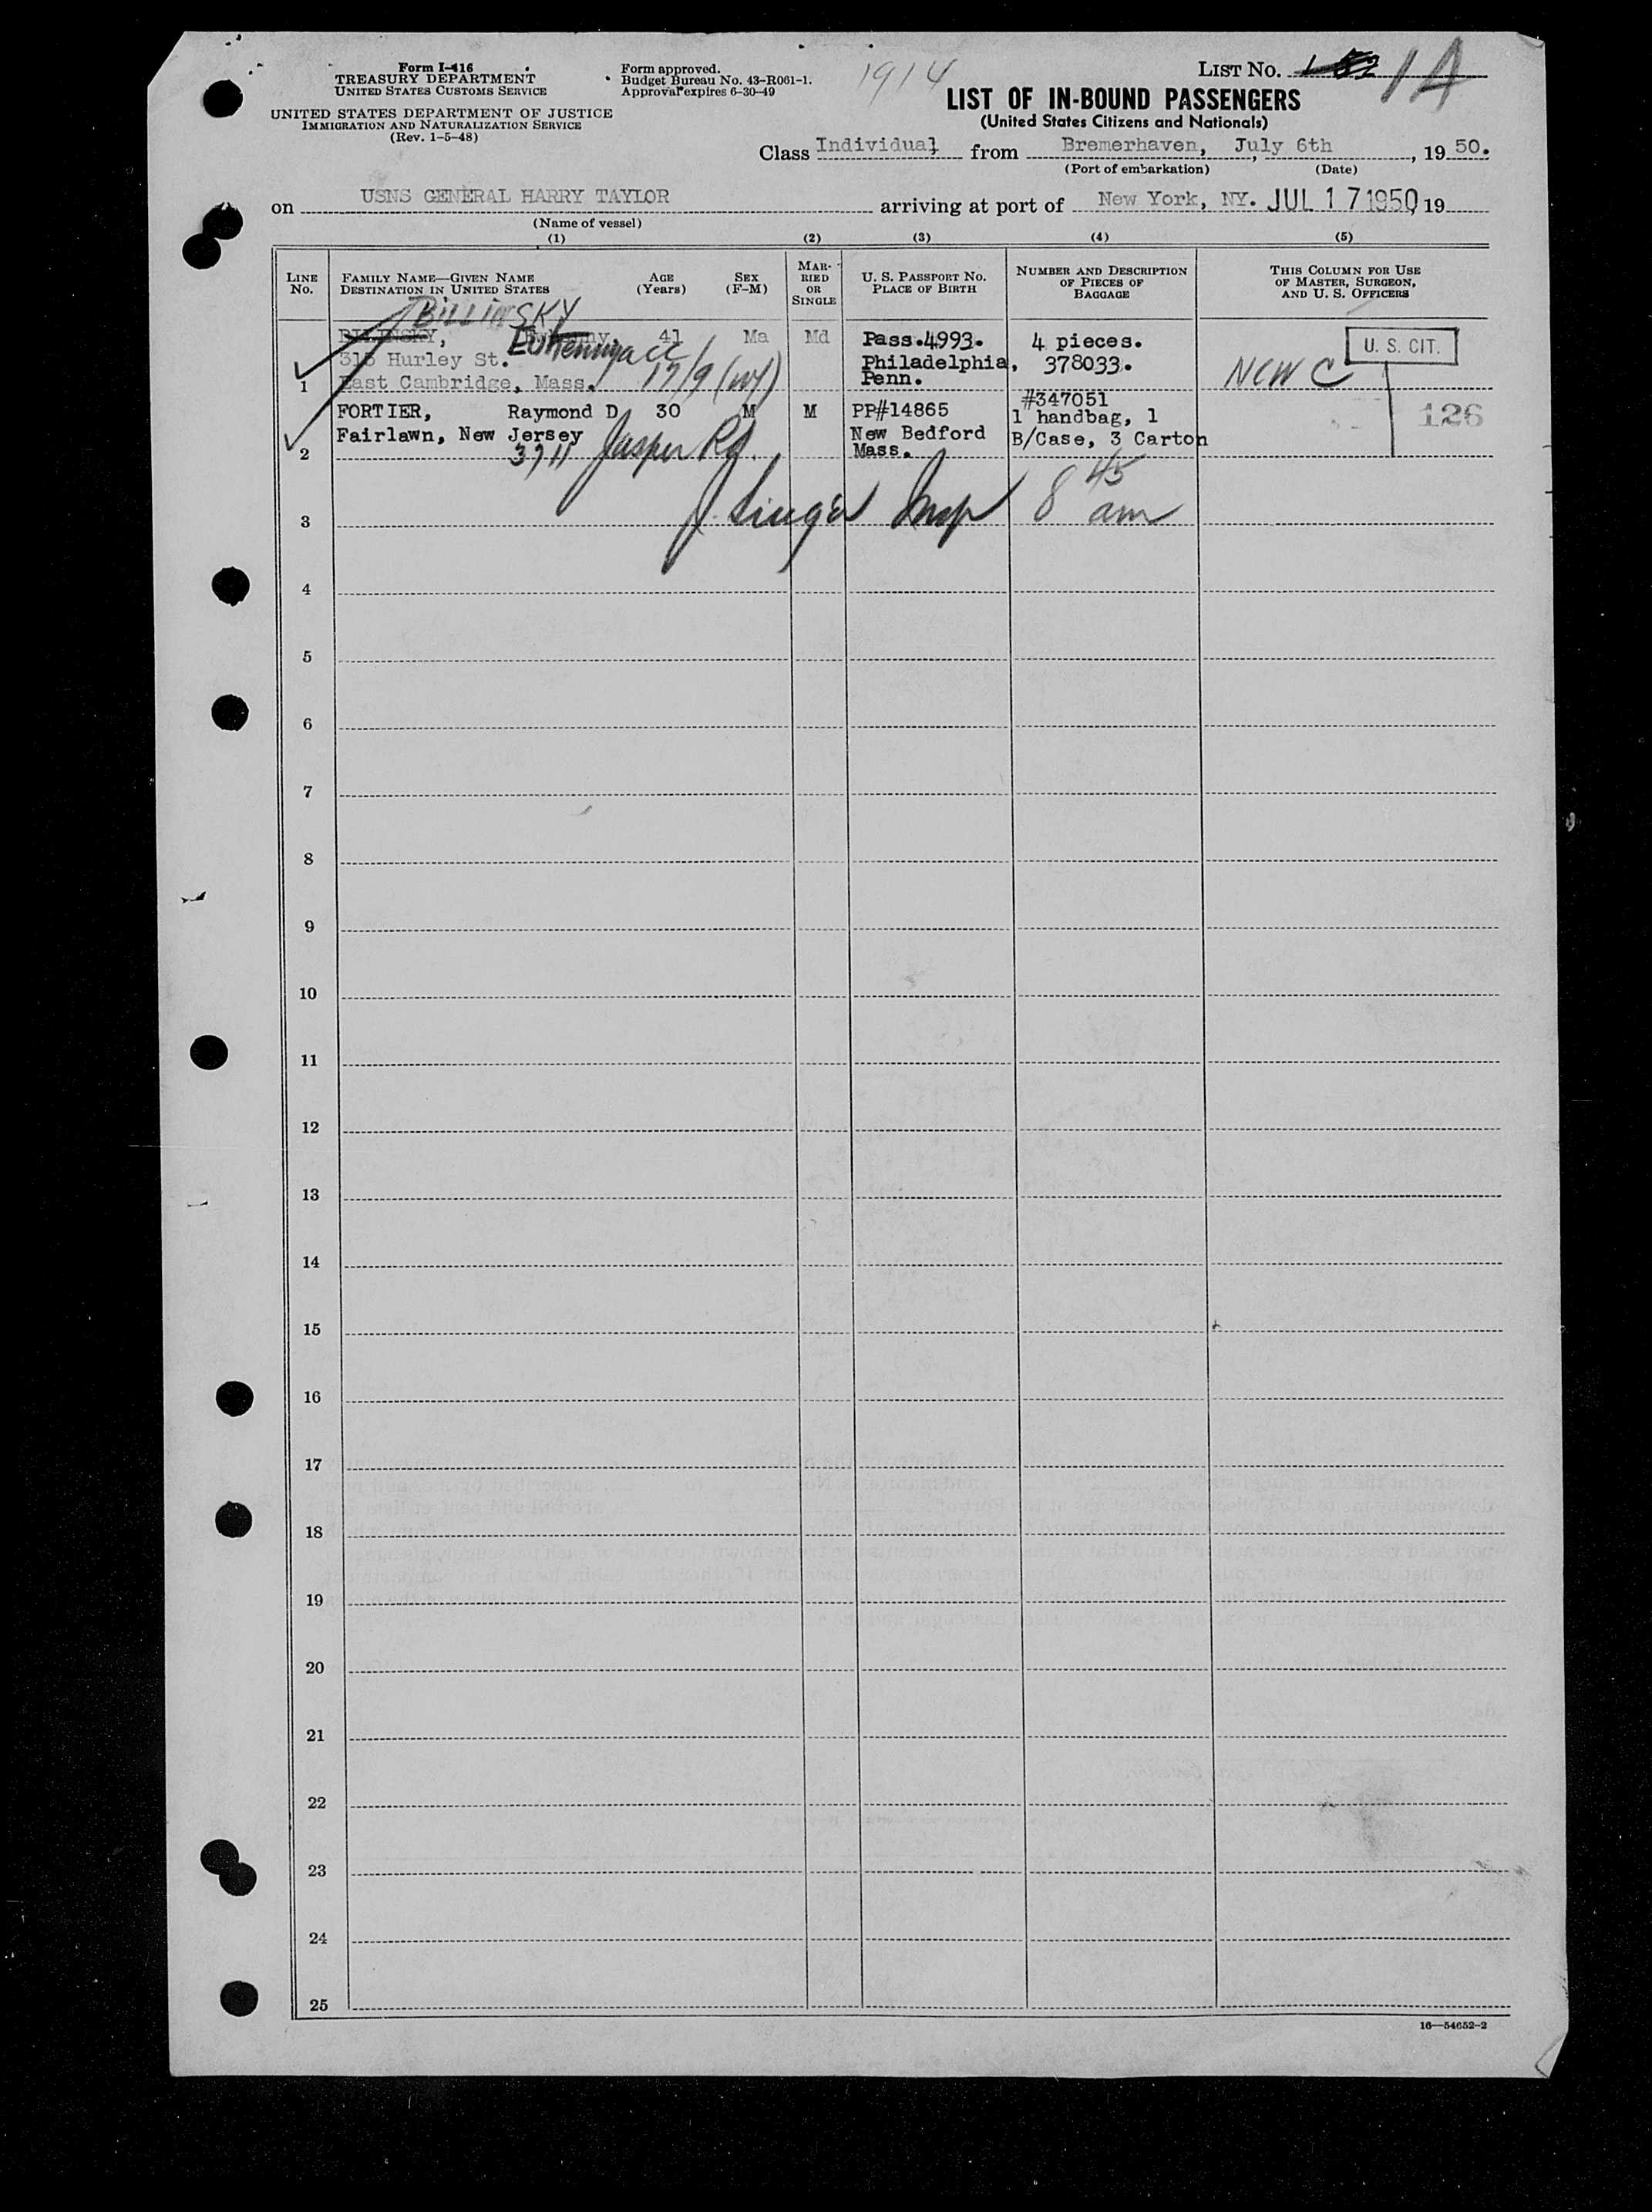 Form I-416
TREASURY DEPARTMENT
UNITED STATES CUSTOMS SERVICE
UNITED STATES DEPARTMENT OF JUSTICE
IMMIGRATION AND NATURALIZATION SERVICE
(Rev. 1-5-48)
Form approved.
Budget Bureau No. 43-R061-1.
Approval expires 6-30-49
1914
LIST No. 1A
LIST OF IN-BOUND PASSENGERS
(United States Citizens and Nationals)
Class Individual from Bremerhaven, July 6th, 19 50.
(Port of embarkation) (Date)
on USNS GENERAL HARRY TAYLOR arriving at port of New York, NY. JUL 17 1950 19
(Name of vessel)
(1) (2) (3) (4) (5)
LINE No.
FAMILY NAME—GIVEN NAME
DESTINATION IN UNITED STATES
AGE (Years)
SEX (F-M)
MARRIED OR SINGLE
U. S. PASSPORT No.
PLACE OF BIRTH
NUMBER AND DESCRIPTION
OF PIECES OF
BAGGAGE
THIS COLUMN FOR USE
OF MASTER, SURGEON,
AND U. S. OFFICERS
BILLINSKY
BILINSKY, 41 Ma Md Pass.4993. 4 pieces. U. S. CIT.
315 Hurley St. Philadelphia, 378033. NCWC
1 East Cambridge, Mass. 17/9 Penn.
FORTIER, Raymond D 30 M M PP#14865 #347051
1 handbag, 1 126
Fairlawn, New Jersey New Bedford B/Case, 3 Carton
2 3711 Jasper Rd. Mass.
3 J. Singer Insp 8 45 am
4
5
6
7
8
9
10
11
12
13
14
15
16
17
18
19
20
21
22
23
24
25
16—54652-2